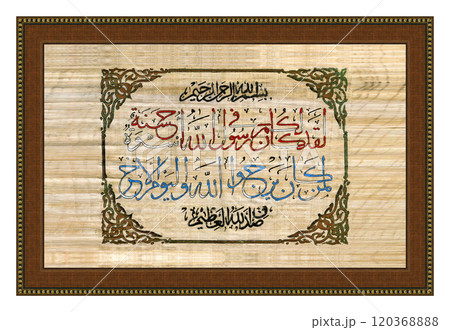 بسم الله الرحمن الرحيم
لقد كان لكم في رسول الله أسوة حسنة
لمن كان يرجوا الله واليوم الآخر
صدق الله العظيم
pixta.jp - 120368888